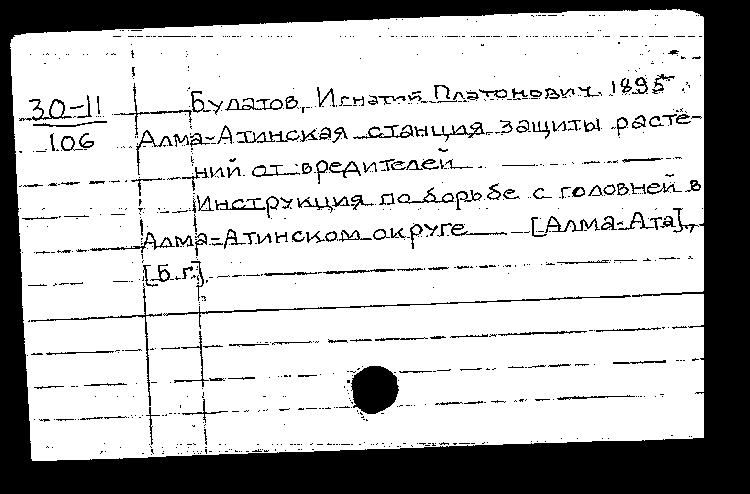 30-11
106
Булатов, Игнатий Платонович. 1895
Алма-Атинская станция защиты расте-
ний от вредителей
Инструкция по борьбе с головней в
Алма-Атинском округе [Алма-Ата],
[Б.г.].